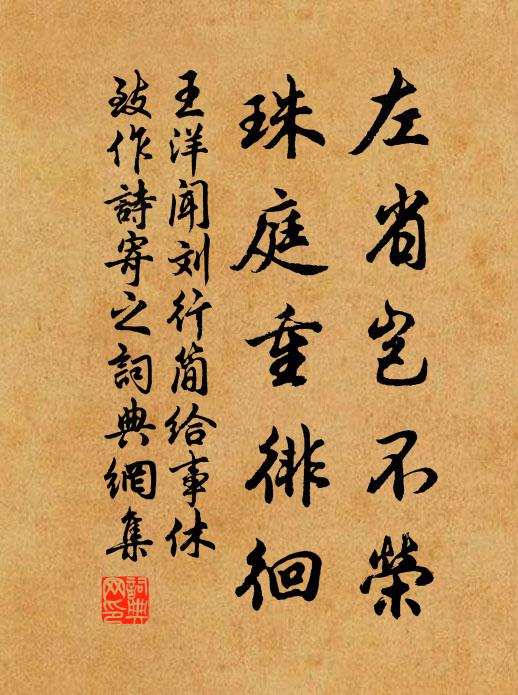 左省岂不榮
珠庭重徘徊
王洋闻刘行简给事休
致作詩寄之詞典網集
詞典网印